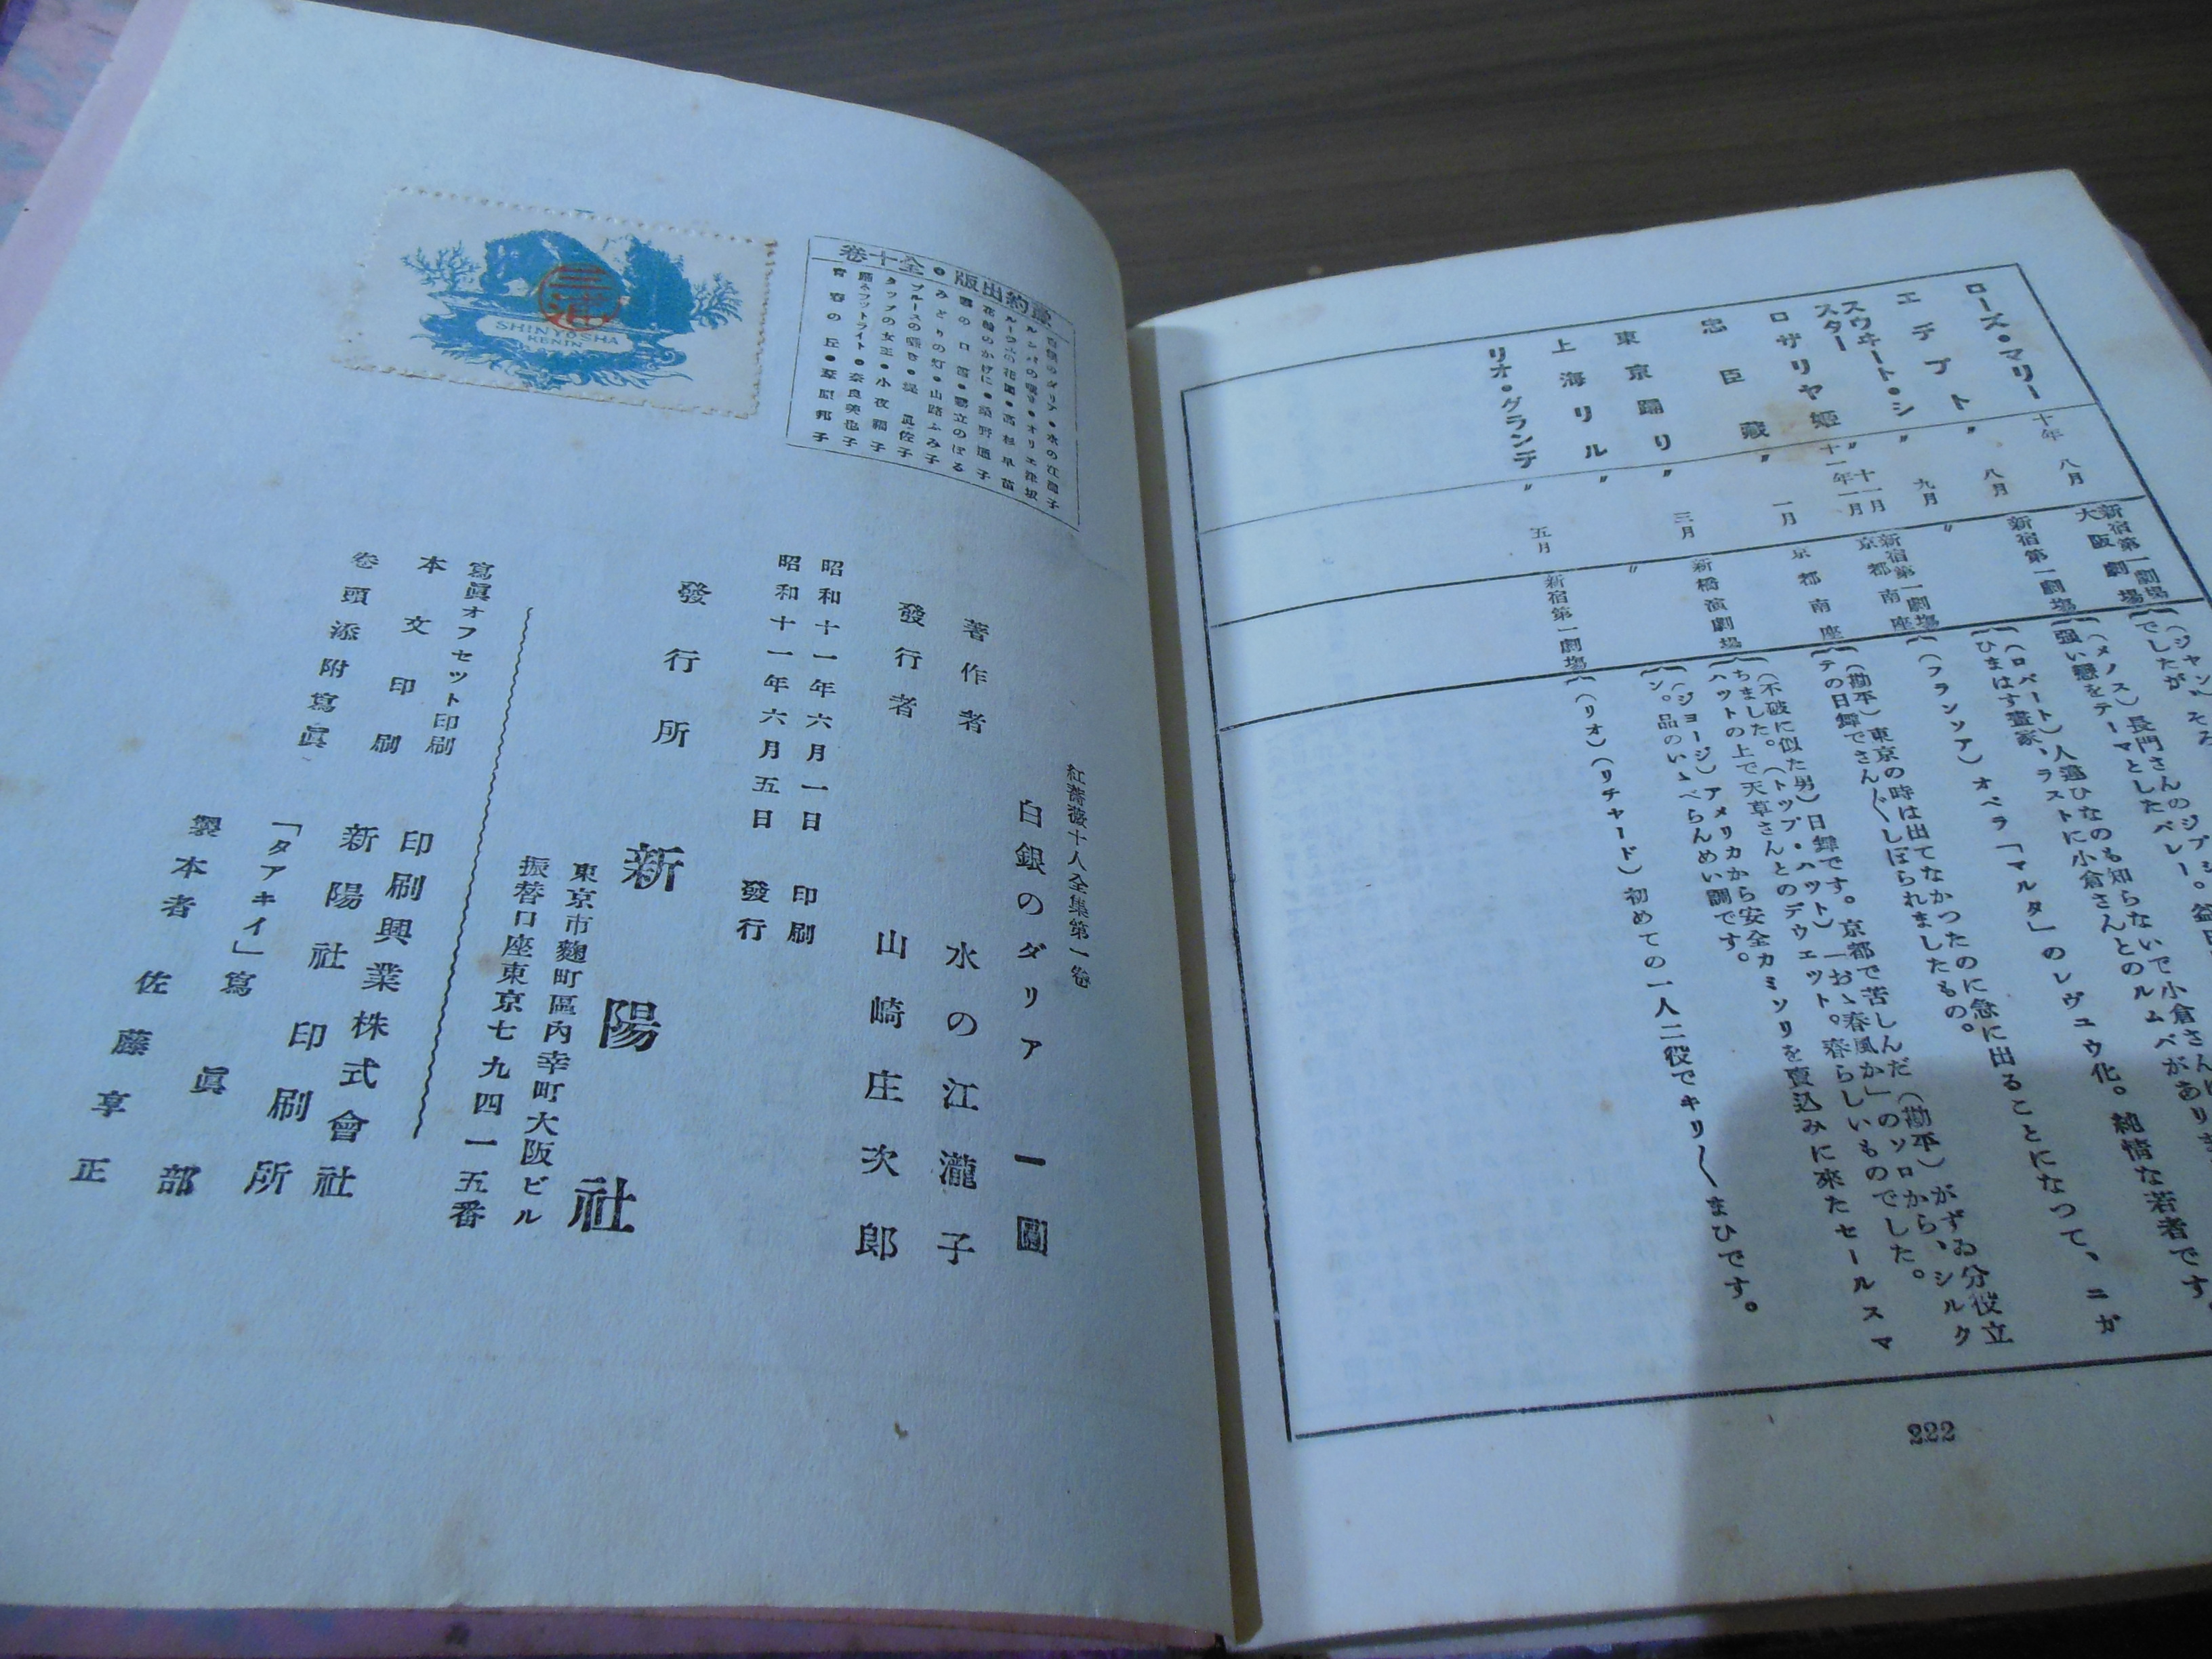 ローズ・マリー
十年 八月
新宿第一劇場
大阪劇場
エヂプト
〃 八月
新宿第一劇場
スウヰート・シ
スター
〃 九月
〃
ロザリヤ姫
〃 十一月
十一年一月
新宿第一劇場
京都南座
忠臣蔵
〃 一月
京都南座
東京踊り
〃 三月
新橋演劇場
上海リル
〃
〃
リオ・グランデ
〃 五月
新宿第一劇場
でしたが、そろ
(メノス)長門さんのジプシー。
強い戀をテーマとしたバレー。
(ロバート)人違ひなのも知らないで小倉さん
ひまはす畫家、ラストに小倉さんとのルムバがありま
(フランソア)オペラ「マルタ」のレヴユウ化。純情な若者です。
(勘平)東京の時は出てなかつたのに急に出ることになつて、ニガ
テの日舞でさん〲しぼられましたもの。
(不破に似た男)日舞です。京都で苦しんだ(勘平)がずゐ分役立
ちました。(トツプ・ハツト)「おゝ春風か」のソロから、シルク
ハツトの上で天草さんとのデウエツト。春らしいものでした。
(ジヨージ)アメリカから安全カミソリを賣込みに來たセールスマ
ン。品のいゝべらんめい調です。
(リオ)(リチヤード)初めての一人二役でキリ〱まひです。
222
豫約出版・全十卷
白銀のダリア・水の江瀧子
ルンバの嘆き・オリエ津坂
花籠のかげに・桑野通子
みどりの灯・山路ふみ子
ブルースの囁き・堤眞佐子
タツプの女王・小夜福子
踊るフツトライト・奈良美也子
青春の丘・葦原邦子
三浦
SHINYOSHA
KENIN
紅薔薇十人全集第一卷
白銀のダリア 一圓
著作者 水の江瀧子
發行者 山崎庄次郎
昭和十一年六月一日 印刷
昭和十一年六月五日 發行
發行所 新陽社
東京市麴町區内幸町大阪ビル
振替口座東京七九四一五番
寫眞オフセツト印刷 印刷興業株式會社
本文印刷 新陽社印刷所
卷頭添附寫眞 「タアキイ」寫眞部
製本者 佐藤享正